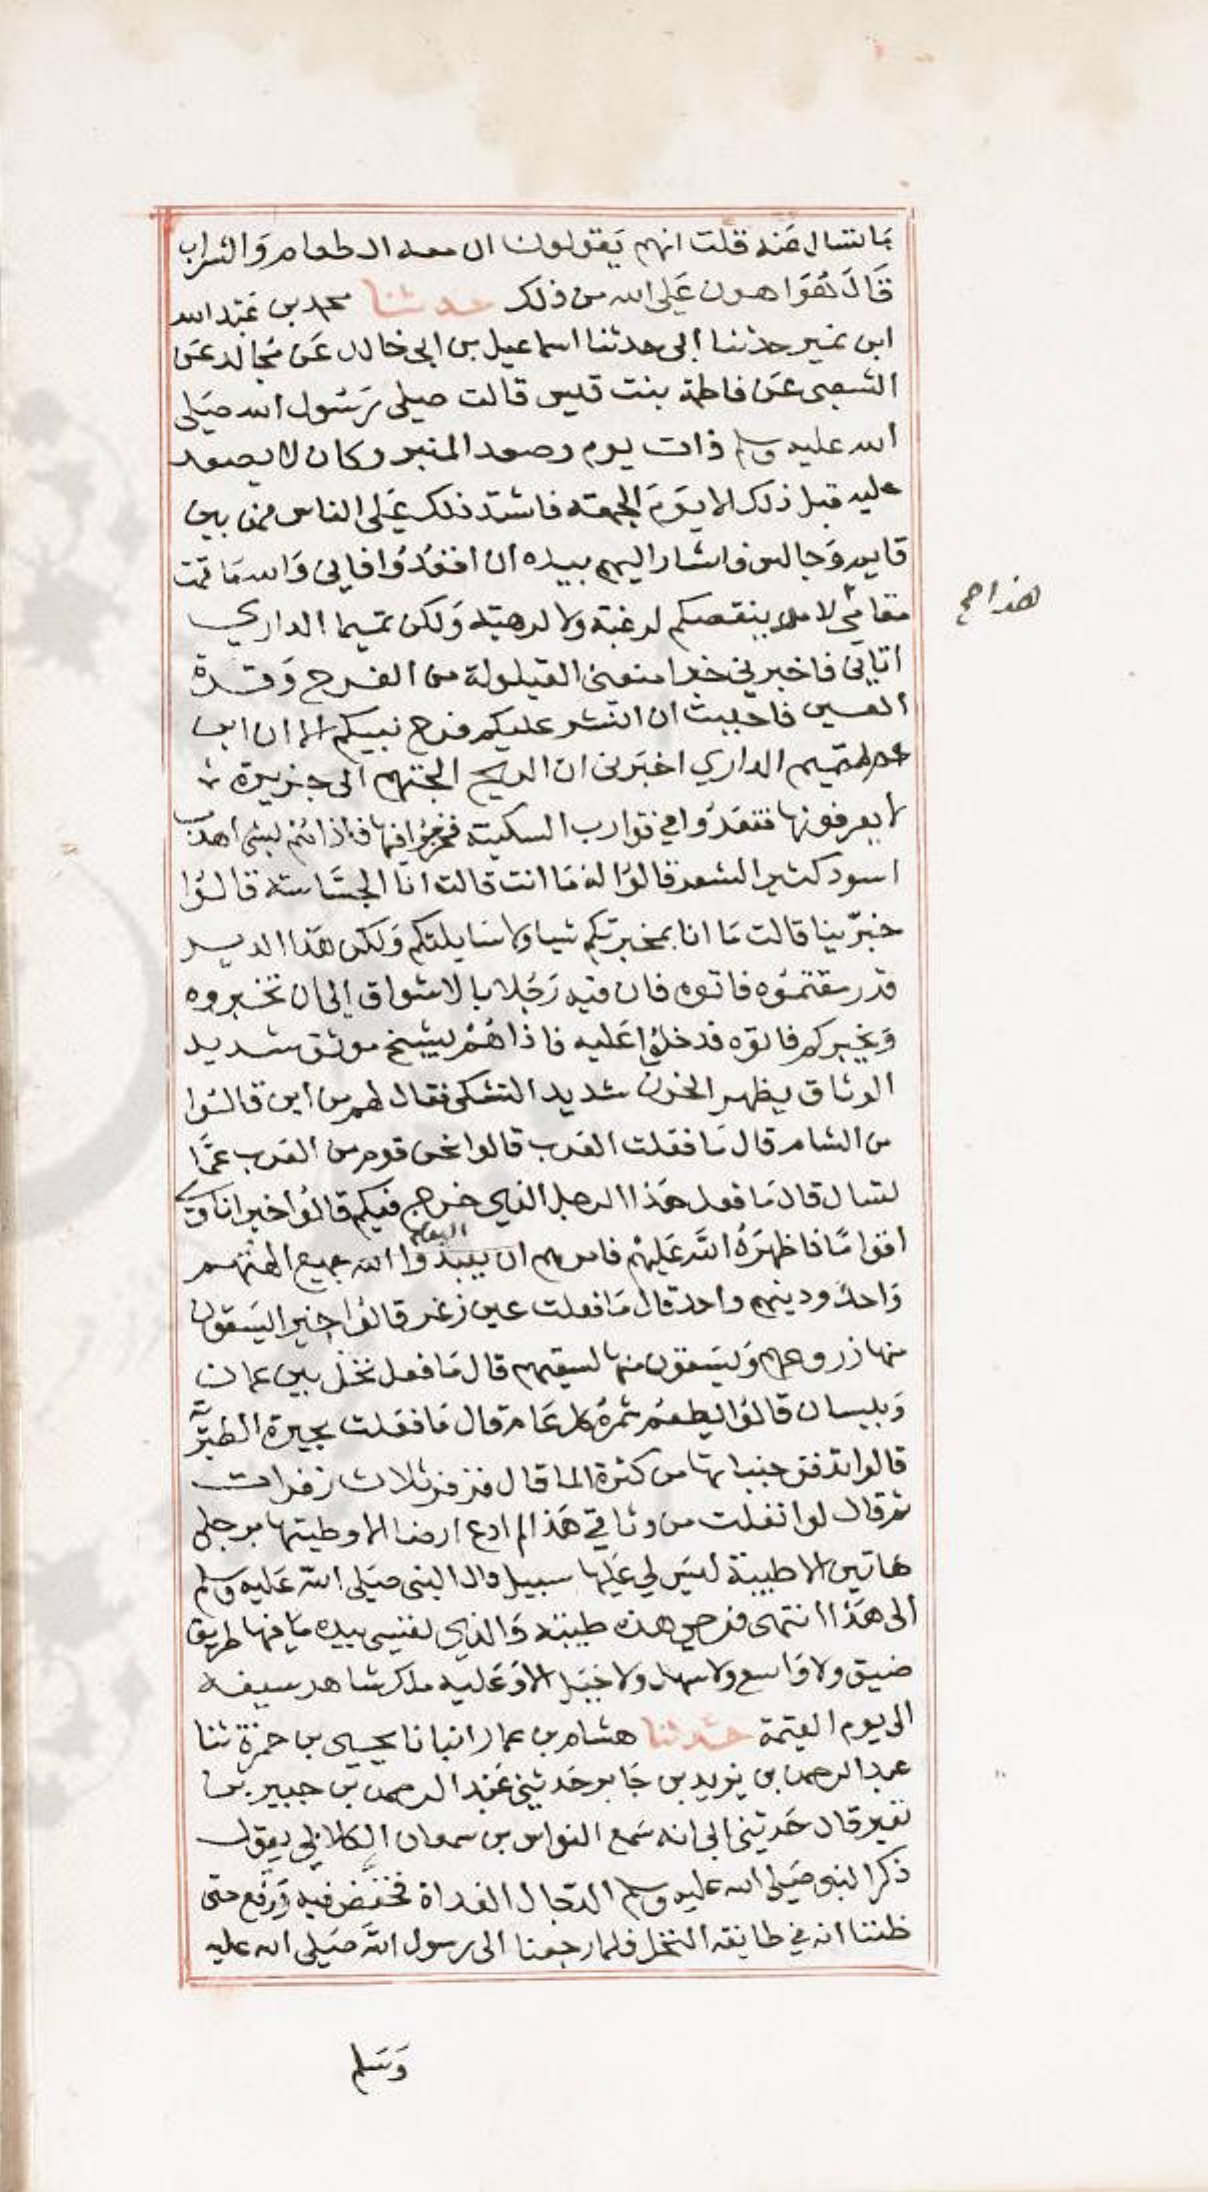 ما تسال عنه قلت انهم يَقولون ان معه الطعام وَالشراب
قَالَ هُوَ اهون عَلى الله من ذلك حدثنا محمد بن عَبْد الله
ابن نمير حدثنا ابى حدثنا اسماعيل بن ابى خالد عَن مُجالد عَن
الشعبى عَن فاطمة بنت قيس قالت صلى رَسُول الله صَلى
الله عليه وسلم ذات يوم وصعد المنبر وكان لا يصعد
عليه قبل ذلك الا يَوْمَ الجمعة فاشتد ذلك عَلى الناس فمن بين
قايم وَجالس فاشار اليهم بيده ان اقعُدُوا فانى وَالله مَا قمت
مقامى لامر ينفعكم لرغبة ولا لرهبة وَلكن تميما الداري
اتانى فاخبرني خبرا منعنى القيلولة من الفرح وَقرة
العين فاحببت ان انشر عليكم فرح نبيكم الا ان ابن
عم لتميم الداري اخبَرنى ان الريح الجتهم الى جزيرة
لا يعرفونها فقعَدُوا في قوارب السكينة فخرجُوا فيها فاذا هُم بشى اهدب
اسود كثير الشعر قالوُا لهُ مَا انت قالت انَا الجسَّاسة قالُوا
خبّرينا قالت مَا انا بمخبرتكم شيا ولا سَايلتكم وَلكن هَذا الدير
قد رمقتمُوه فاتوه فان فيه رَجُلا بالاشواق الى ان تخبروه
وَيخبركم فاتوه فدخلوُا عَليه فاذا هُمْ بشيخ موثق شديد
الوثاق يظهر الحزن شديد التشكى فقال لهم من اين قالُوا
من الشام قال مَا فعَلت العَرب قالوا نحن قوم من العَرب عمَّا
تسال قال مَا فعل هَذا الرجل الذي خرج فيكم قالوُا خيرا ناوى
قومًا فاظهرَهُ الله عَليْهم فامرهم ان يعبدُوا الله جميع الههم
اليوم
وَاحدٌ ودينهم واحد قال مَا فعلت عين زغر قالوُا خيرا يَسقون
منها زروعهم وَيَستقون منها لسقيهم قال مَا فعل نخل بين عمان
وَبيسان قالوُا يطعم ثمرهُ كل عَام قال مَا فعَلت بحيرة الطبَرية
قالوا تدفق جنباتها من كثرة الما قال فزفر ثلاث زفرات
ثم قال لو انفلت من وثاقي هَذا لم ادع ارضا الا وطيتها برجلى
هَاتين الا طيبة ليَس لي عَليها سبيل قال النبى صَلى الله عَليه وَسلم
الى هَذا انتهى فرحى هذه طيبة وَالذى نفسى بيده مَا فيها طريق
ضيق ولا وَاسع ولا سهل ولا جَبَل الا وَعَليه ملك شاهر سيفه
الى يوم القيمة حَدثنا هشام بن عمار انبانا يحيى بن حمزة ثنا
عبد الرحمن بن يزيد بن جَابر حَدثني عَبْد الرحمن بن جبير بن
نفير قال حَدثني ابى انه سَمع النواس بن سمعان الكلابي يقول
ذكر النبى صَلى الله عليه وسلم الدجال الغداة فخفض فيه وَرفع حتى
ظننا انه في طايفة النخل فلما رجعنا الى رسول الله صَلى الله عليه
وَسَلم
هذا صح